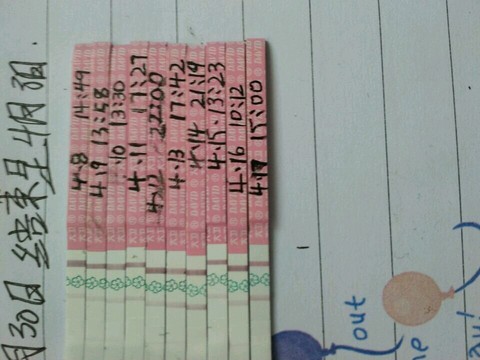 月30日 结束是4月3日.
4.8 14:49
4.9 13:58
.10 13:30
4.11 17:27
4.12 22:00
4.13 17:42
4.14 21:19
4.15. 13:23
4.16 10:12
4.17 15:00
大卫 DAVID
out